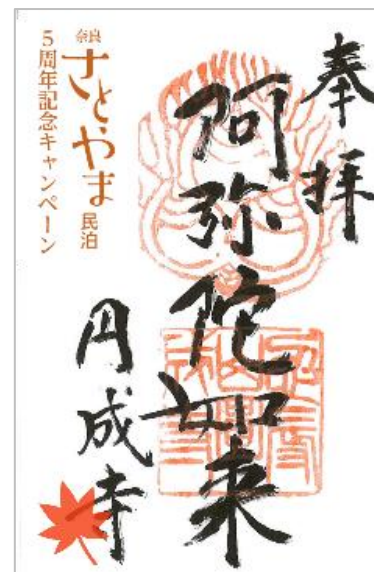 奉拝
阿弥陀如来
円成寺
奈良
さとやま
民泊
5周年記念キャンペーン